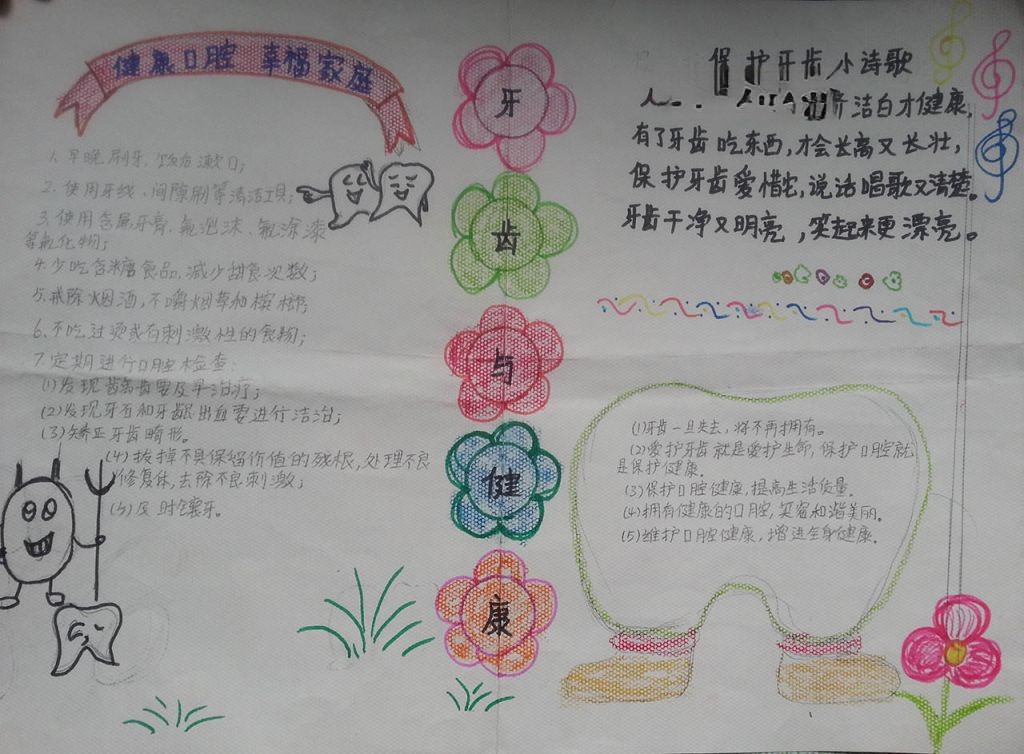 健康口腔 幸福家庭
1.早晚刷牙、饭后漱口;
2.使用牙线、间隙刷等清洁工具;
3.使用含氟牙膏、氟泡沫、氟涂漆
等氟化物;
4.少吃含糖食品,减少甜食次数;
5.戒除烟酒,不嚼烟草和槟榔;
6.不吃过烫或有刺激性的食物;
7.定期进行口腔检查:
(1)发现龋齿要及早治疗;
(2)发现牙石和牙龈出血要进行洁治;
(3)矫正牙齿畸形。
(4)拔掉不具保留价值的残根,处理不良
修复体,去除不良刺激;
(5)及时镶牙。
牙
齿
与
健
康
保护牙齿小诗歌
人
洁白才健康,
有了牙齿吃东西,才会长高又长壮,
保护牙齿爱惜它,说话唱歌又清楚。
牙齿干净又明亮,笑起来更漂亮。
(1)牙齿一旦失去,将不再拥有。
(2)爱护牙齿就是爱护生命,保护口腔就
是保护健康。
(3)保护口腔健康,提高生活质量。
(4)拥有健康的口腔,笑容和谐美丽。
(5)维护口腔健康,增进全身健康。